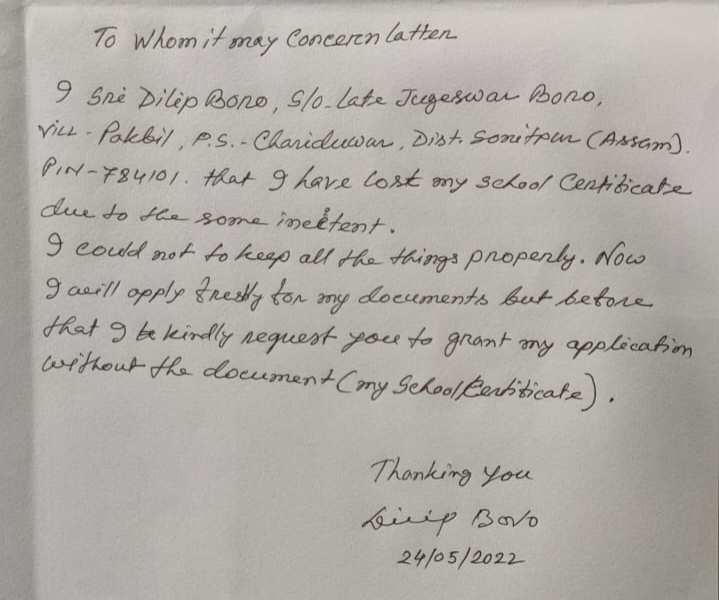 To Whom it may Concern Latter
I Sri Dilip Boro, S/o- Late Jugeswar Boro,
Vill - Pakbil, P.S. - Chariduwar, Dist. Sonitpur (Assam).
PIN-784101. that I have lost my school Certificate
due to the some incetent.
I could not to keep all the things properly. Now
I will apply freshly for my documents but before
that I be kindly request you to grant my application
without the document (my School Certificate).
Thanking you
Dilip Boro
24/05/2022